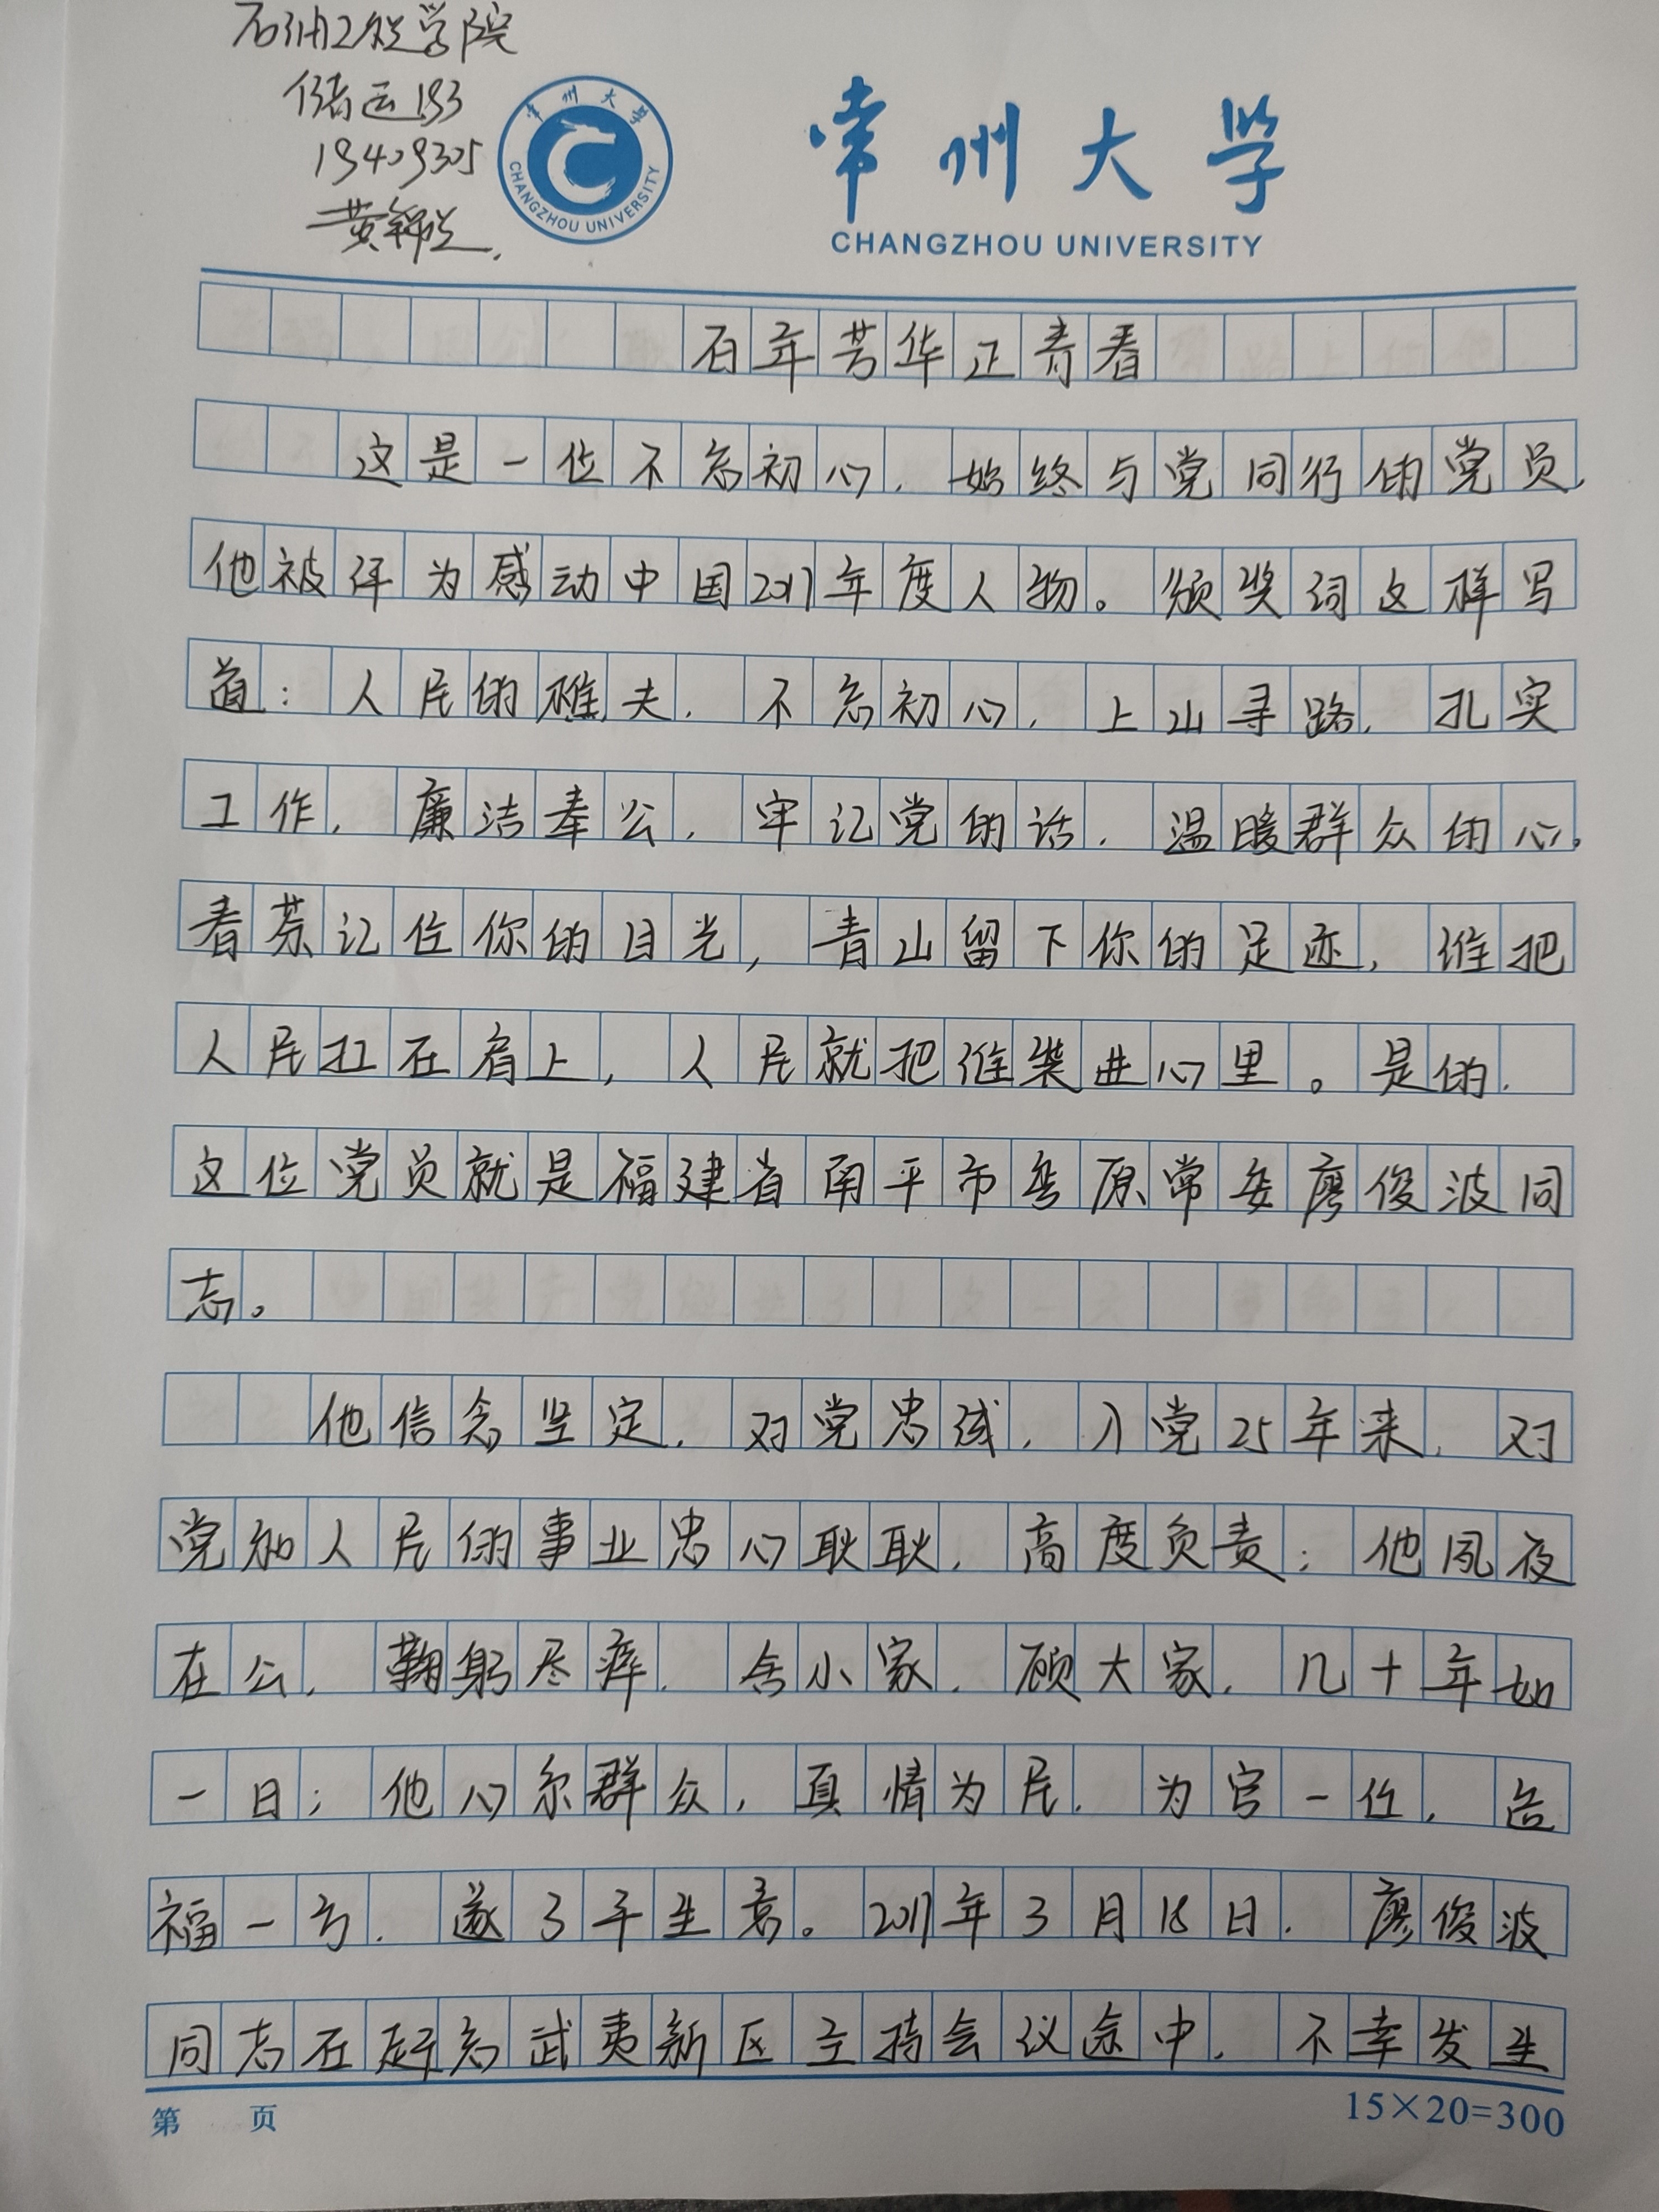 石油工程学院
储运193
19409305
黄
常州大学
CHANGZHOU UNIVERSITY
常州大学
CHANGZHOU UNIVERSITY
百年芳华正青春
这是一位不忘初心，始终与党同行的党员，
他被评为感动中国2017年度人物。颁奖词这样写
道：人民的樵夫，不忘初心，上山寻路，扎实
工作，廉洁奉公，牢记党的话，温暖群众的心。
春茶记住你的目光，青山留下你的足迹，谁把
人民扛在肩上，人民就把谁装进心里。是的，
这位党员就是福建省南平市委原常委廖俊波同
志。
他信念坚定，对党忠诚，入党25年来，对
党和人民的事业忠心耿耿，高度负责；他夙夜
在公，鞠躬尽瘁，舍小家，顾大家，几十年如
一日；他心系群众，真情为民，为官一任，造
福一方，遂了平生意。2017年3月18日，廖俊波
同志在赶忘武夷新区主持会议途中，不幸发生
第 页
15×20=300